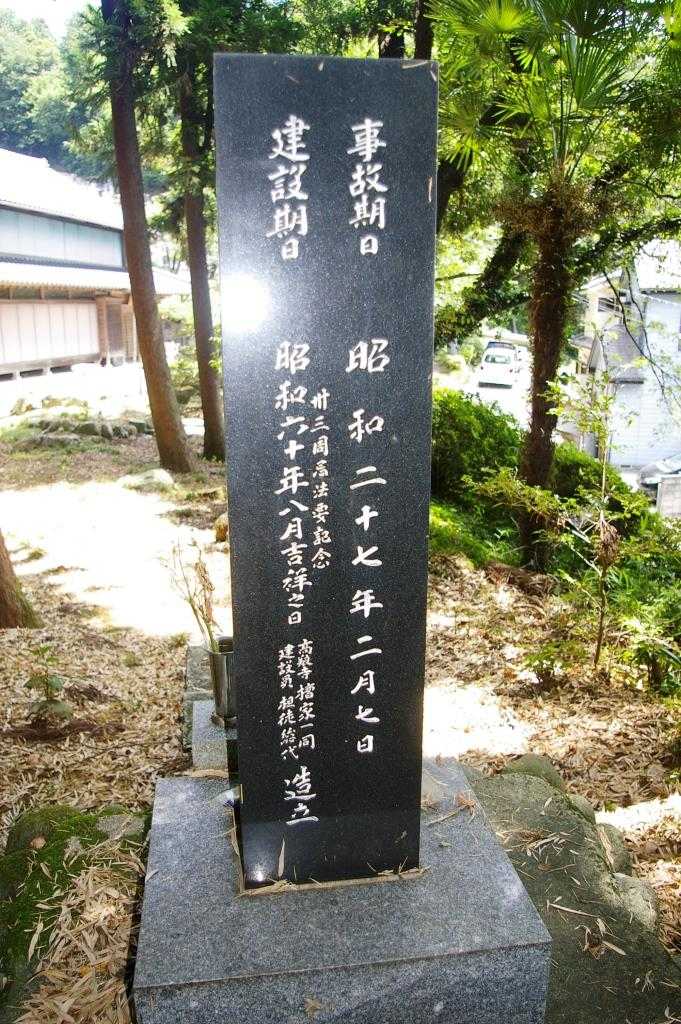 事故期日 昭和二十七年二月七日
卅三周忌法要記念
建設期日 昭和六十年八月吉祥之日
檀家一同
建設 総代
造立